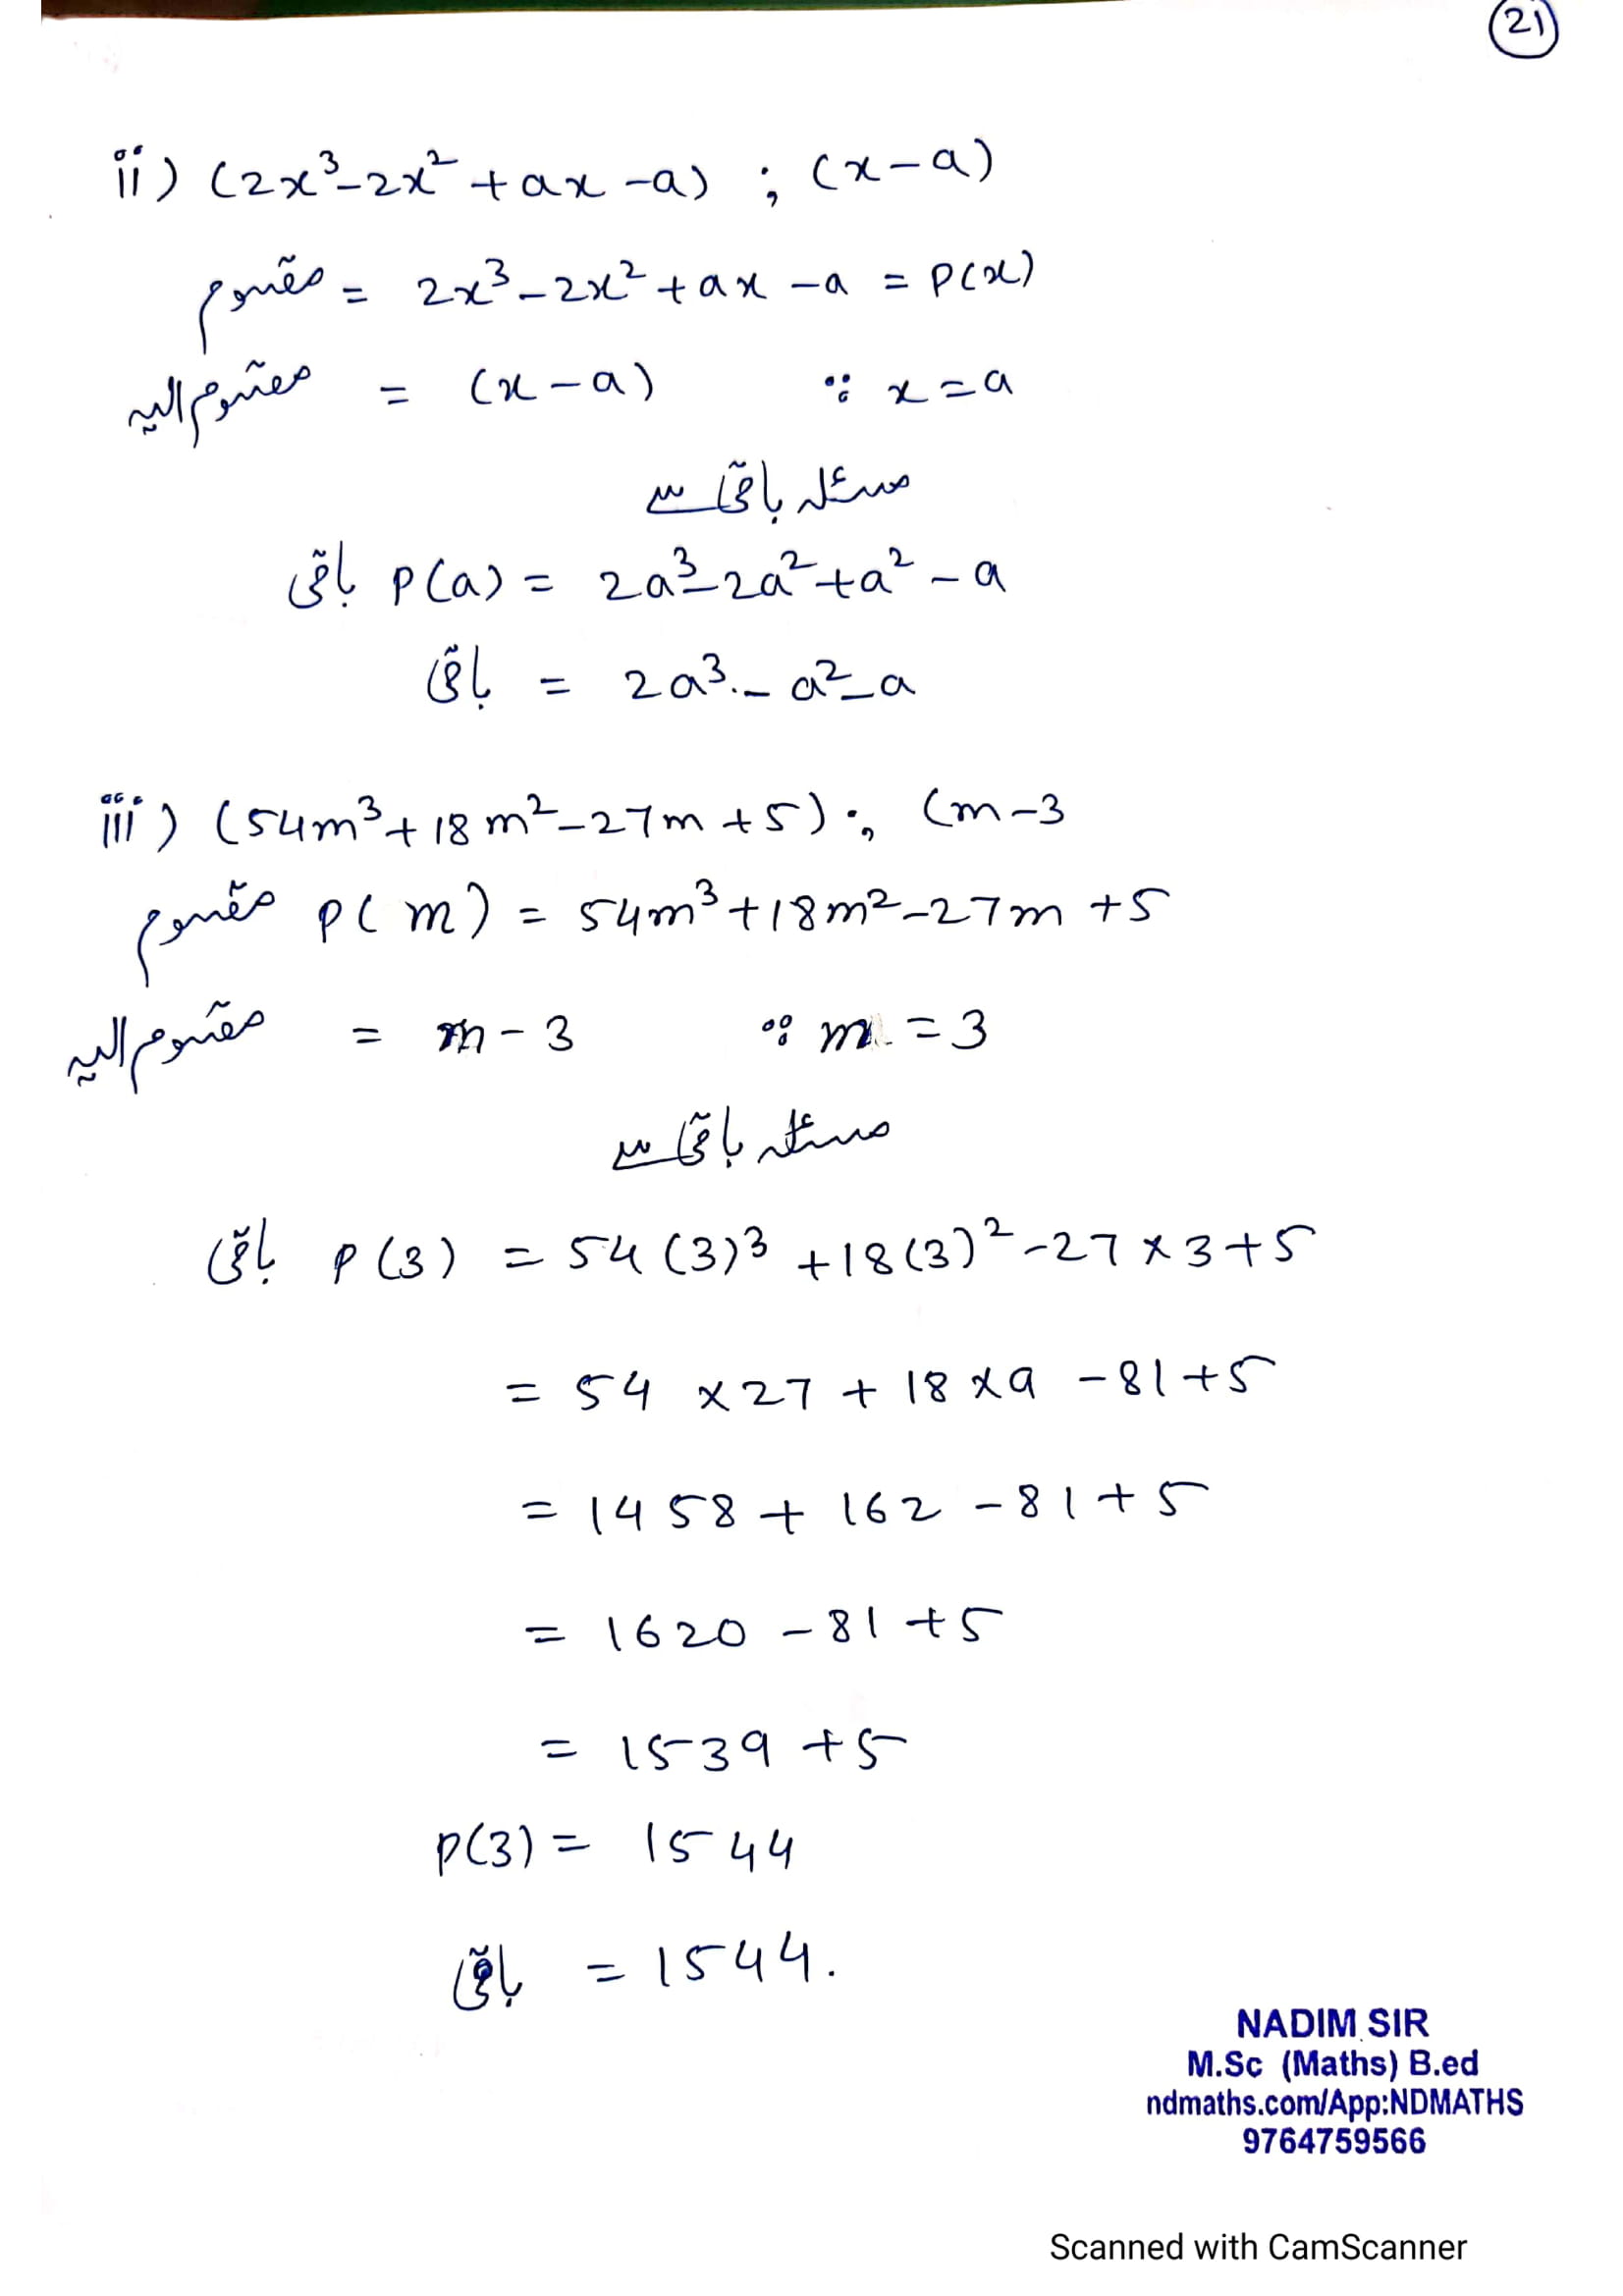 21
ii) (2x³-2x²+ax-a) ; (x-a)
مقسوم = 2x³-2x²+ax-a = P(x)
مقسوم الیہ = (x-a) ∵ x=a
مسئلہ باقی سے
باقی P(a) = 2a³-2a²+a²-a
باقی = 2a³-a²-a
iii) (54m³+18m²-27m+5) ; (m-3
مقسوم P(m) = 54m³+18m²-27m+5
مقسوم الیہ = m-3 ∵ m=3
مسئلہ باقی سے
باقی P(3) = 54(3)³+18(3)²-27×3+5
= 54×27+18×9-81+5
= 1458+162-81+5
= 1620-81+5
= 1539+5
P(3) = 1544
باقی = 1544.
NADIM SIR
M.Sc (Maths) B.ed
ndmaths.com/App:NDMATHS
9764759566
Scanned with CamScanner